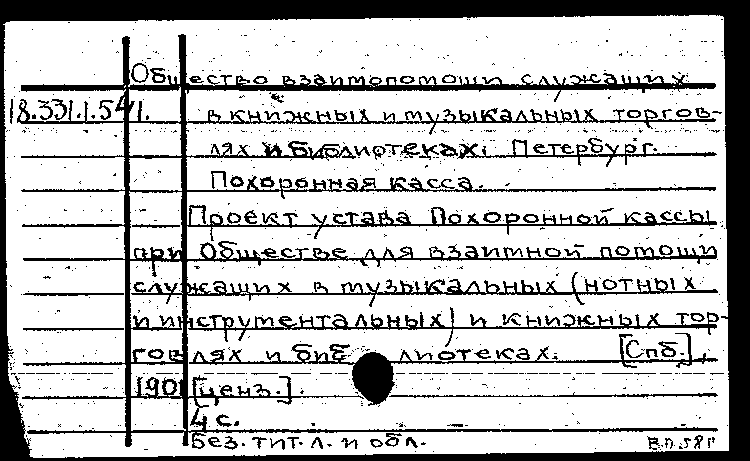 Общество взаимопомощи служащих
18.331.1.541. в книжных и музыкальных торгов-
лях и библиотеках. Петербург.
Похоронная касса.
Проект устава Похоронной кассы
при Обществе для взаимной помощи
служащих в музыкальных (нотных
и инструментальных) и книжных тор-
говлях и библиотеках. [Спб.],
1901 [ценз.].
4 с.
Без. тит. л. и обл.